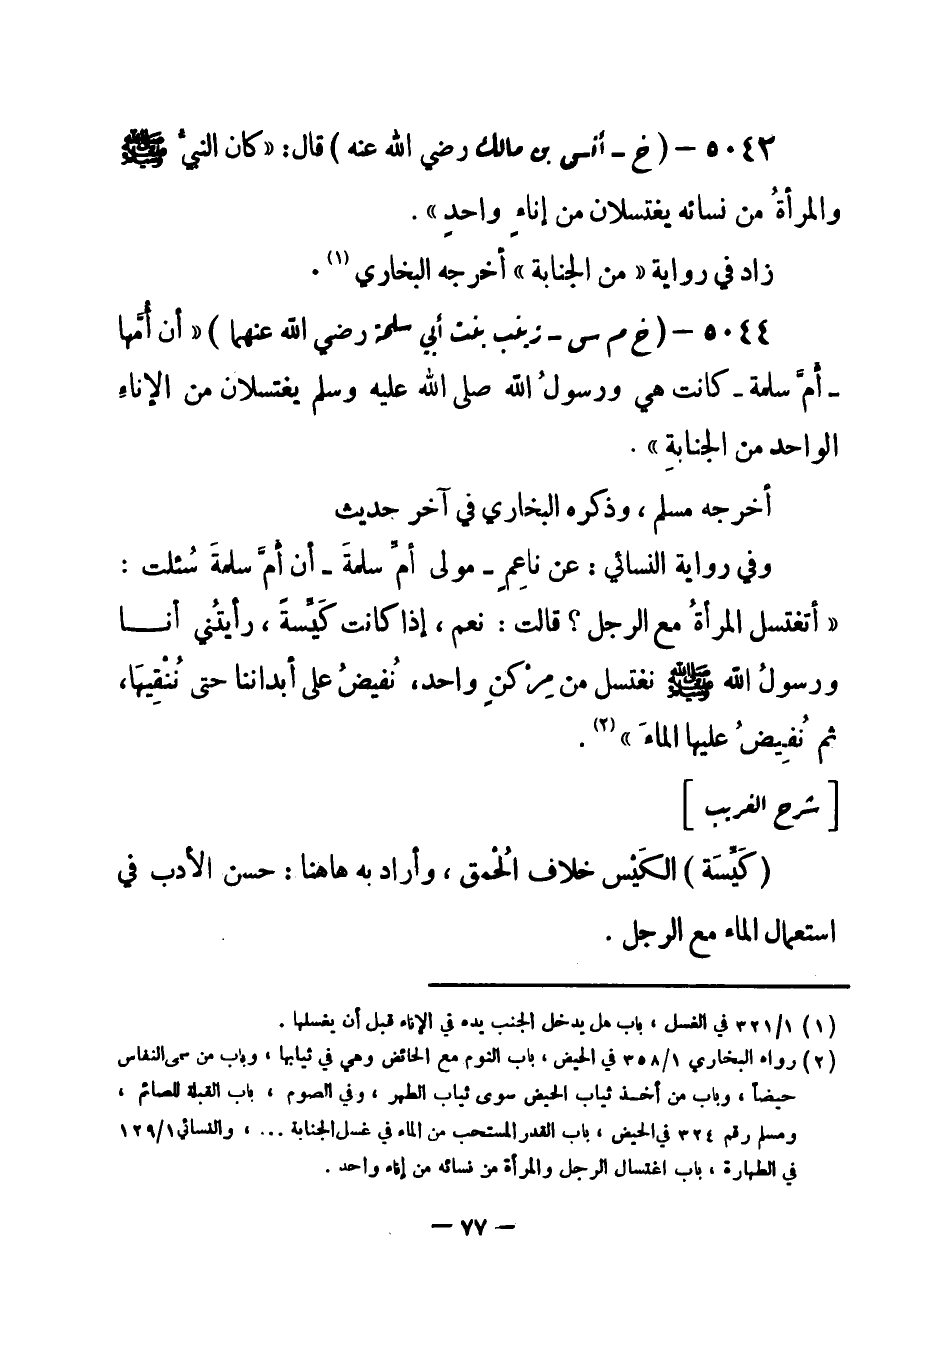 ٥٠٤٣ – ( خ ـ أنس بن مالك رضي الله عنه ) قال: « كان النبيُّ ﷺ
والمرأةُ من نسائه يغتسلان من إناءٍ واحدٍ » .
زاد في رواية « من الجنابة » أخرجه البخاري (١) .
٥٠٤٤ – ( خ م س ـ زينب بنت أبي سلمة رضي الله عنهما ) « أن أُمَّها
ـ أُمَّ سلمة ـ كانت هي ورسولُ الله صلى الله عليه وسلم يغتسلان من الإناءِ
الواحد من الجنابةِ » .
أخرجه مسلم ، وذكره البخاري في آخر حديث
وفي رواية النسائي : عن ناعِمٍ ـ مولى أمِّ سلمةَ ـ أن أُمَّ سلمةَ سُئلت :
« أتغتسل المرأةُ مع الرجل ؟ قالت : نعم ، إذا كانت كَيِّسةً ، رأيتُني أنـــا
ورسولُ الله ﷺ نغتسل من مِرْكنٍ واحد، نُفيضُ على أبداننا حتى نُنْقِيهَا،
ثم نُفِيضُ عليها الماءَ » (٢) .
[ شرح الغريب ]
( كَيِّسَة ) الكَيْس خلاف الُحْمق ، وأراد به هاهنا : حسن الأدب في
استعمال الماء مع الرجل .
(١) ٣٢١/١ في الغسل ، باب هل يدخل الجنب يده في الإناء قبل أن يغسلها .
(٢) رواه البخاري ٣٥٨/١ في الحيض ، باب النوم مع الحائض وهي في ثيابها ، وباب من سمى النفاس
حيضاً ، وباب من أخـذ ثياب الحيض سوى ثياب الطهر ، وفي الصوم ، باب القبلة للصائم ،
ومسلم رقم ٣٢٤ في الحيض ، باب القدر المستحب من الماء في غسل الجنابة ... ، والنسائي ١٢٩/١
في الطهارة ، باب اغتسال الرجل والمرأة من نسائه من إناء واحد .
– ٧٧ –